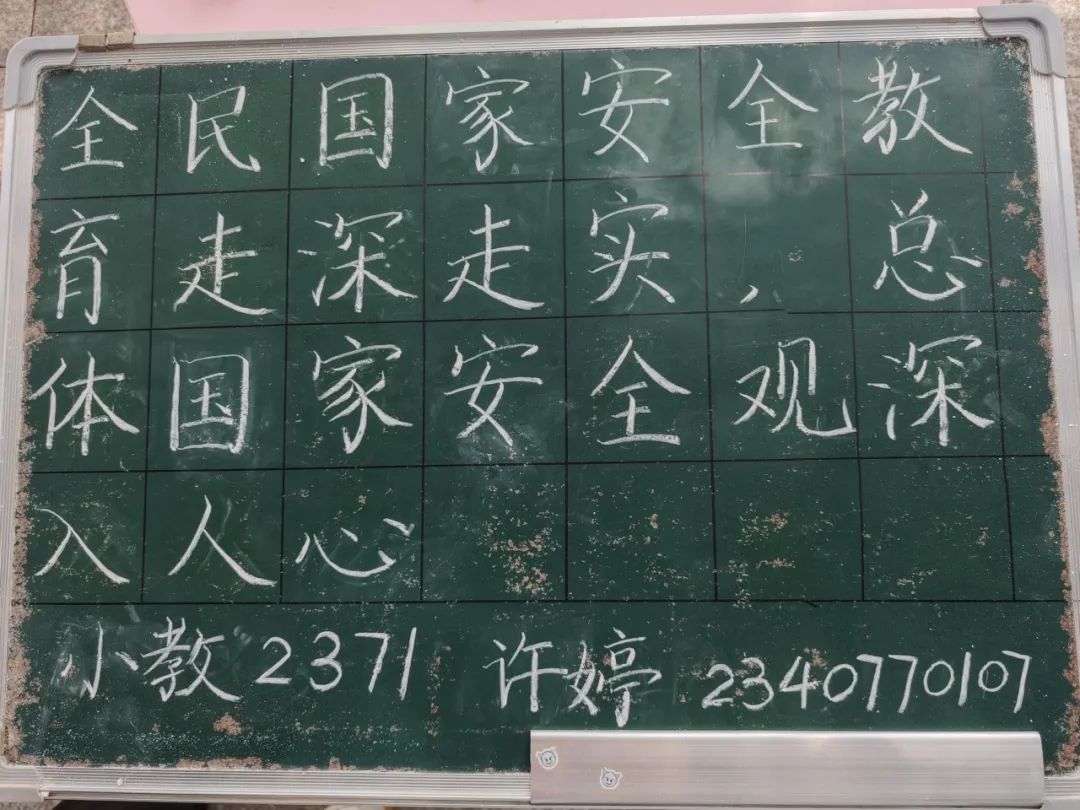 全民国家安全教
育走深走实，总
体国家安全观深
入人心
小教2371 许婷 2340770107